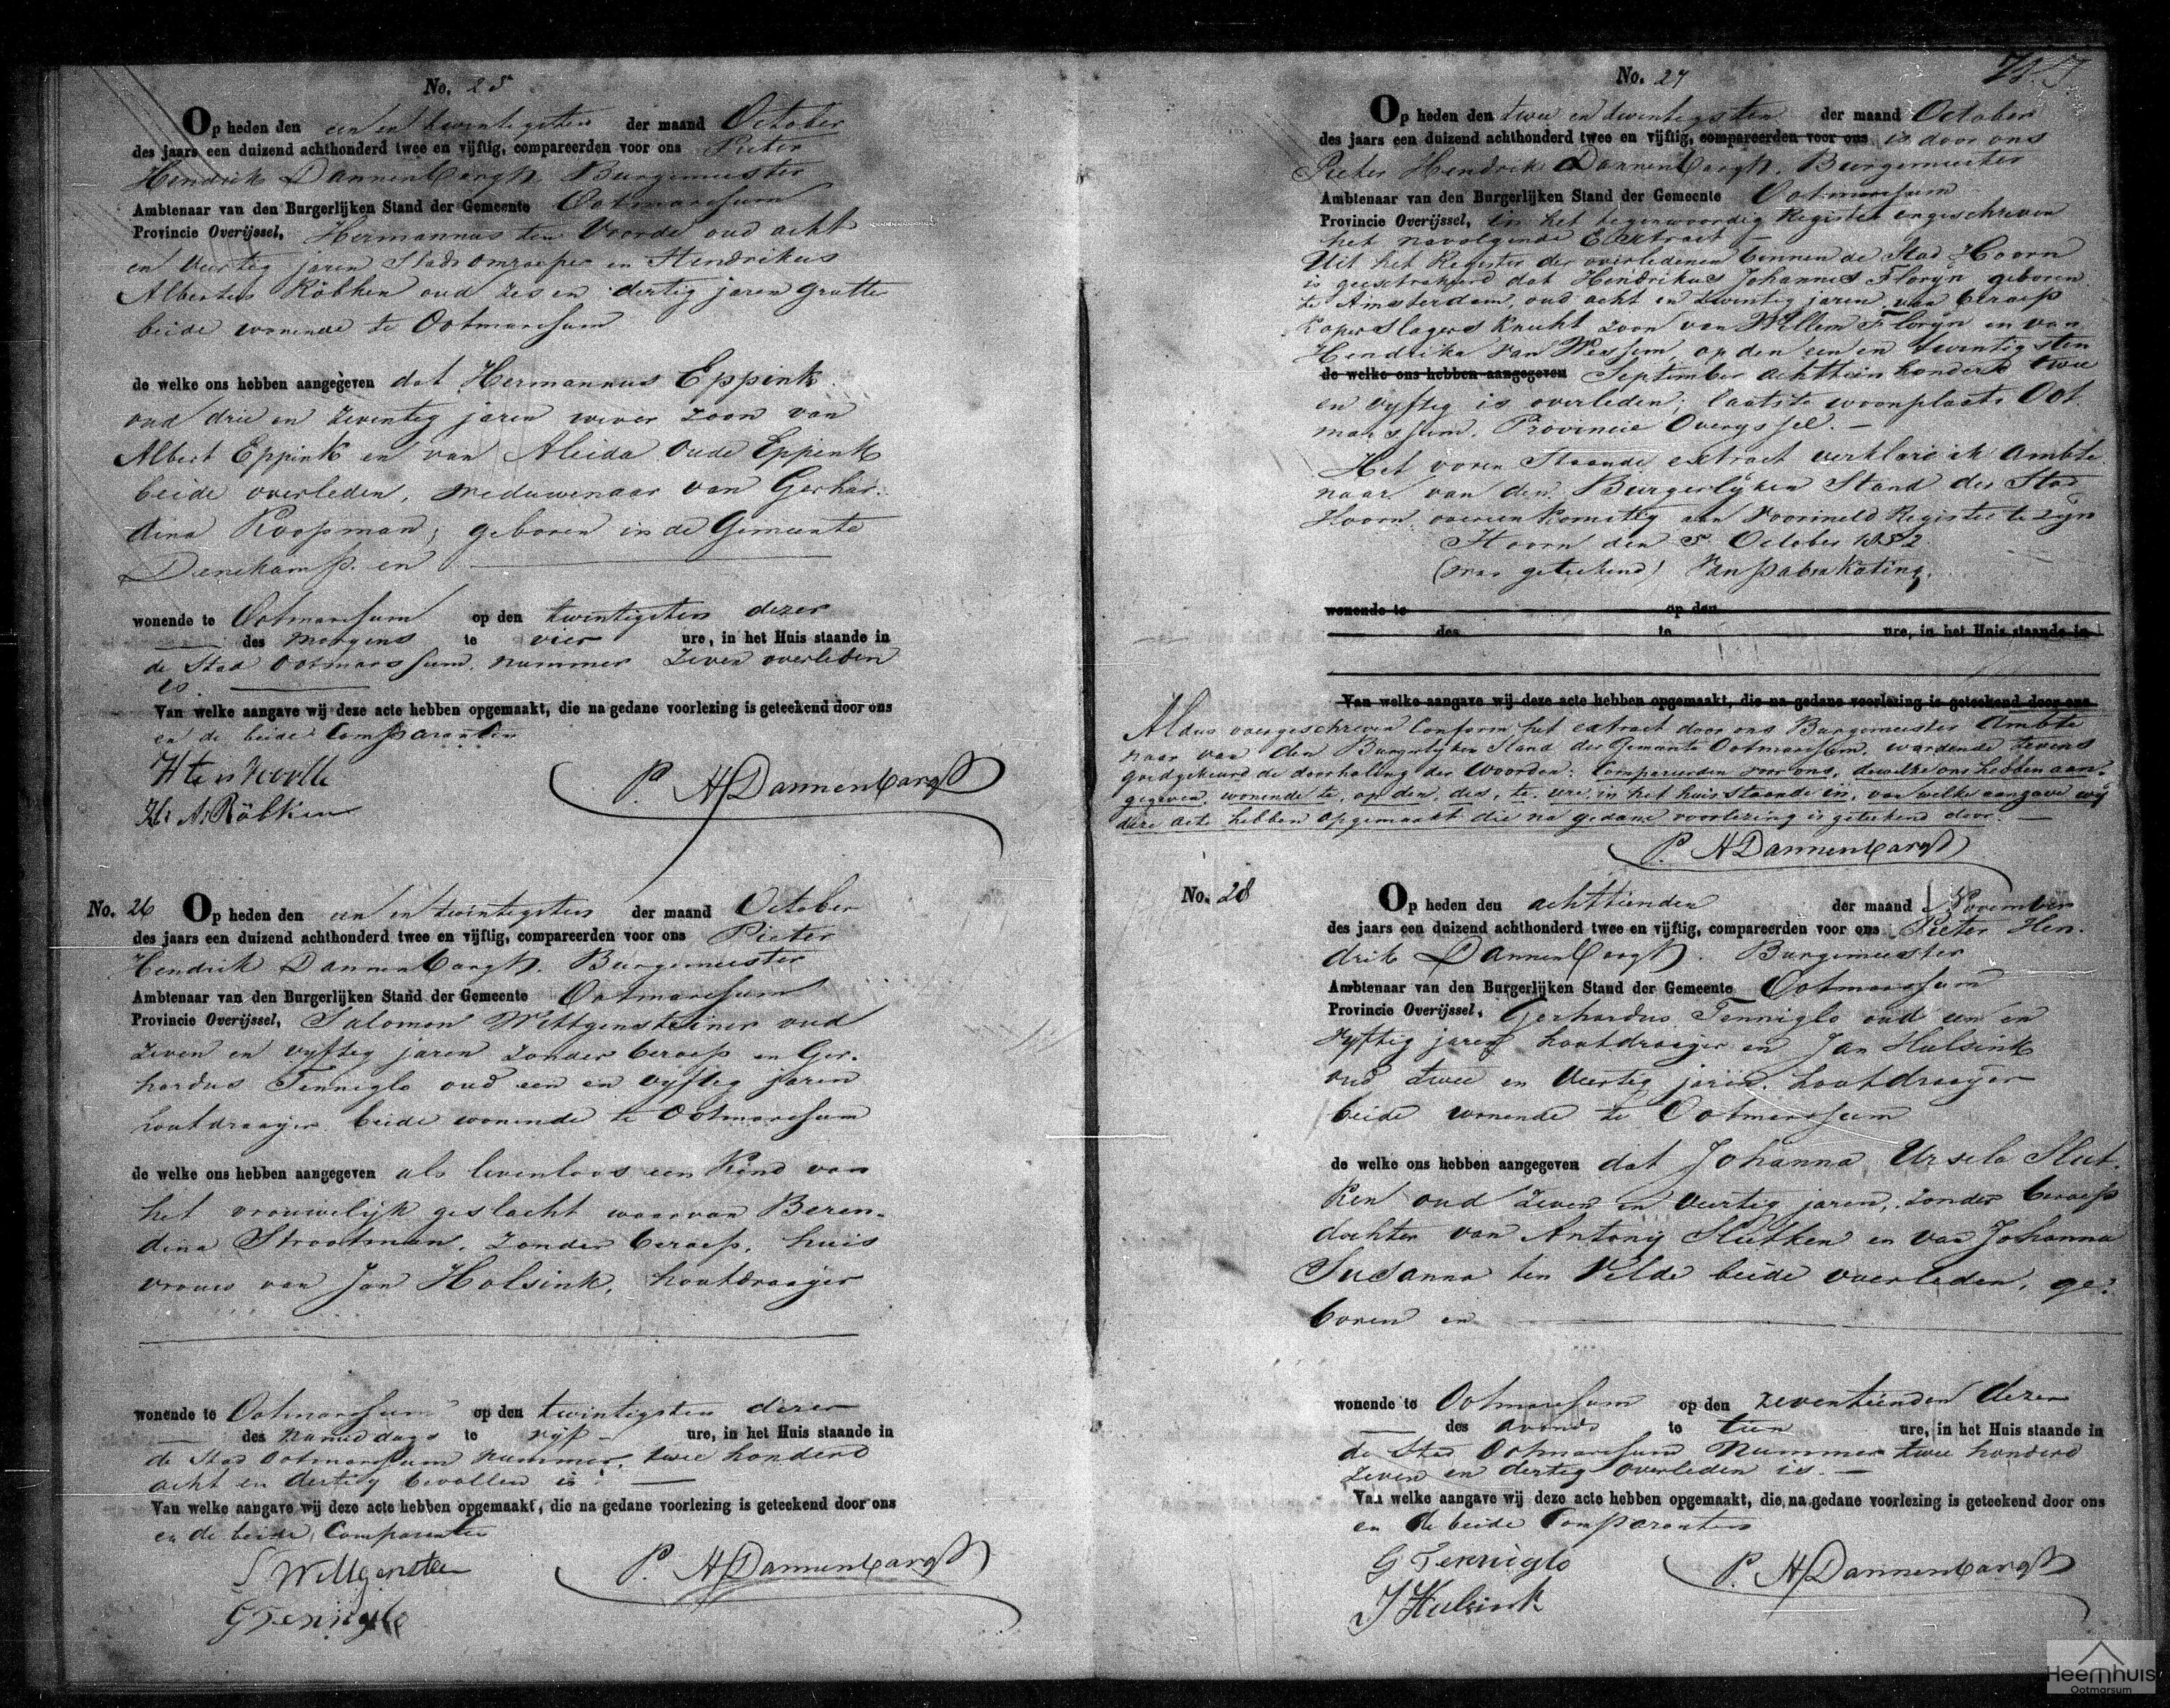 No. 25
Op heden den een en twintigsten der maand October
des jaars een duizend achthonderd twee en vijftig, compareerden voor ons Pieter
Hendrik Dannenbargh, Burgemeester
Ambtenaar van den Burgerlijken Stand der Gemeente Ootmarssum
Provincie Overijssel, Hermannus ten Voorde oud acht
en veertig jaren Stads omroeper en Hendrikus
Albertus Röbken oud zes en dertig jaren
beide wonende te Ootmarssum
de welke ons hebben aangegeven dat Hermannus Eppink
oud drie en zeventig jaren wever zoon van
Albert Eppink en van Aleida Oude Eppink
beide overleden, weduwenaar van Gerhar-
dina Koopman, geboren in de Gemeente
Denekamp en
wonende te Ootmarssum op den twintigsten dezer
des morgens te vier ure, in het Huis staande in
de Stad Ootmarssum, nummer zeven overleden
is.
Van welke aangave wij deze acte hebben opgemaakt, die na gedane voorlezing is geteekend door ons
en de beide Comparanten
H ten Voorde
H. A. Röbken
P. H Dannenbargh
No. 26 Op heden den een en twintigsten der maand October
des jaars een duizend achthonderd twee en vijftig, compareerden voor ons Pieter
Hendrik Dannenbargh. Burgemeester
Ambtenaar van den Burgerlijken Stand der Gemeente Ootmarssum
Provincie Overijssel, Salomon Wittgensteiner oud
zeven en vyftig jaren zonder beroep en Ger-
hardus Tenniglo oud een en vyftig jaren
houtdraager beide wonende te Ootmarssum
de welke ons hebben aangegeven als levenloos een Kind van
het vrouwelijk geslacht waarvan Beren-
dina Strootman, zonder beroep, huis
vrouw van Jan Holsink, houtdraager
wonende te Ootmarssum op den twintigsten dezer
des namiddags te vyf ure, in het Huis staande in
de Stad Ootmarssum nummer, twee honderd
acht en dertig bevallen is.
Van welke aangave wij deze acte hebben opgemaakt, die na gedane voorlezing is geteekend door ons
en de beide Comparanten
S Wittgenstein
G Tenniglo
P. H Dannenbargh
No. 27
Op heden den twee en twintigsten der maand October
des jaars een duizend achthonderd twee en vijftig, compareerden voor ons is door ons
Pieter Hendrik Dannenbargh. Burgemeester
Ambtenaar van den Burgerlijken Stand der Gemeente Ootmarssum
Provincie Overijssel, in het tegenwoordig Register ingeschreven
het navolgende Extract
Uit het Register der overledenen binnen de Stad Hoorn
is geextraheerd dat Hendrikus Johannes Floryn geboren
te Amsterdam, oud acht en twintig jaren van beroep
Koperslagers Knecht zoon van Willem Floryn en van
Hendrika van Wessem, op den een en twintigsten
de welke ons hebben aangegeven September achttien honderd twee
en vyftig is overleden; laatste woonplaats Oot
marssum. Provincie Overyssel.
Het voren Staande extract verklare ik Ambte
naar van den Burgerlyken Stand der Stad
Hoorn overeenkomstig aan voormeld Register te zyn
Hoorn den 5 October 1852
(was geteekend)
wonende te op den
des te ure, in het Huis staande in
Van welke aangave wij deze acte hebben opgemaakt, die na gedane voorlezing is geteekend door ons
Aldus overgeschreven Conform het extract door ons Burgemeester Ambte
naar van den Burgerlyken Stand der Gemeente Ootmarssum, wordende tevens
goedgekeurd de doorhaling der woorden: Compareerden voor ons, dewelke ons hebben aan-
gegeven, wonende te, op den, des, te, ure, in het huis staande in, van welke aangave wy
deze acte hebben opgemaakt die na gedane voorlezing is geteekend door.
P. H Dannenbargh
No. 28
Op heden den achttienden der maand November
des jaars een duizend achthonderd twee en vijftig, compareerden voor ons Pieter Hen-
drik Dannenbargh. Burgemeester
Ambtenaar van den Burgerlijken Stand der Gemeente Ootmarssum
Provincie Overijssel, Gerhardus Tenniglo oud een en
vyftig jaren houtdraager en Jan Hulsink
oud twee en veertig jaren, houtdraager
beide wonende te Ootmarssum
de welke ons hebben aangegeven dat Johanna Ursela Slut-
ken oud zeven en veertig jaren, zonder beroep
dochter van Antony Slutken en van Johanna
Susanna ten Velde beide overleden, ge-
boren en
wonende te Ootmarssum op den zeventienden dezer
des avonds te tien ure, in het Huis staande in
de Stad Ootmarssum Nummer twee honderd
zeven en dertig overleden is.
Van welke aangave wij deze acte hebben opgemaakt, die na gedane voorlezing is geteekend door ons
en de beide Comparanten
G Tenniglo
J Hulsink
P. H Dannenbargh
Heemhuis
Ootmarsum